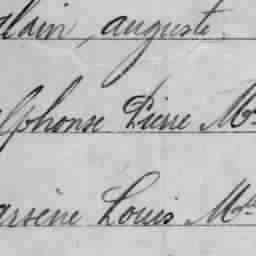 Alain, auguste.
alphonse Pierre M
arsène Louis M